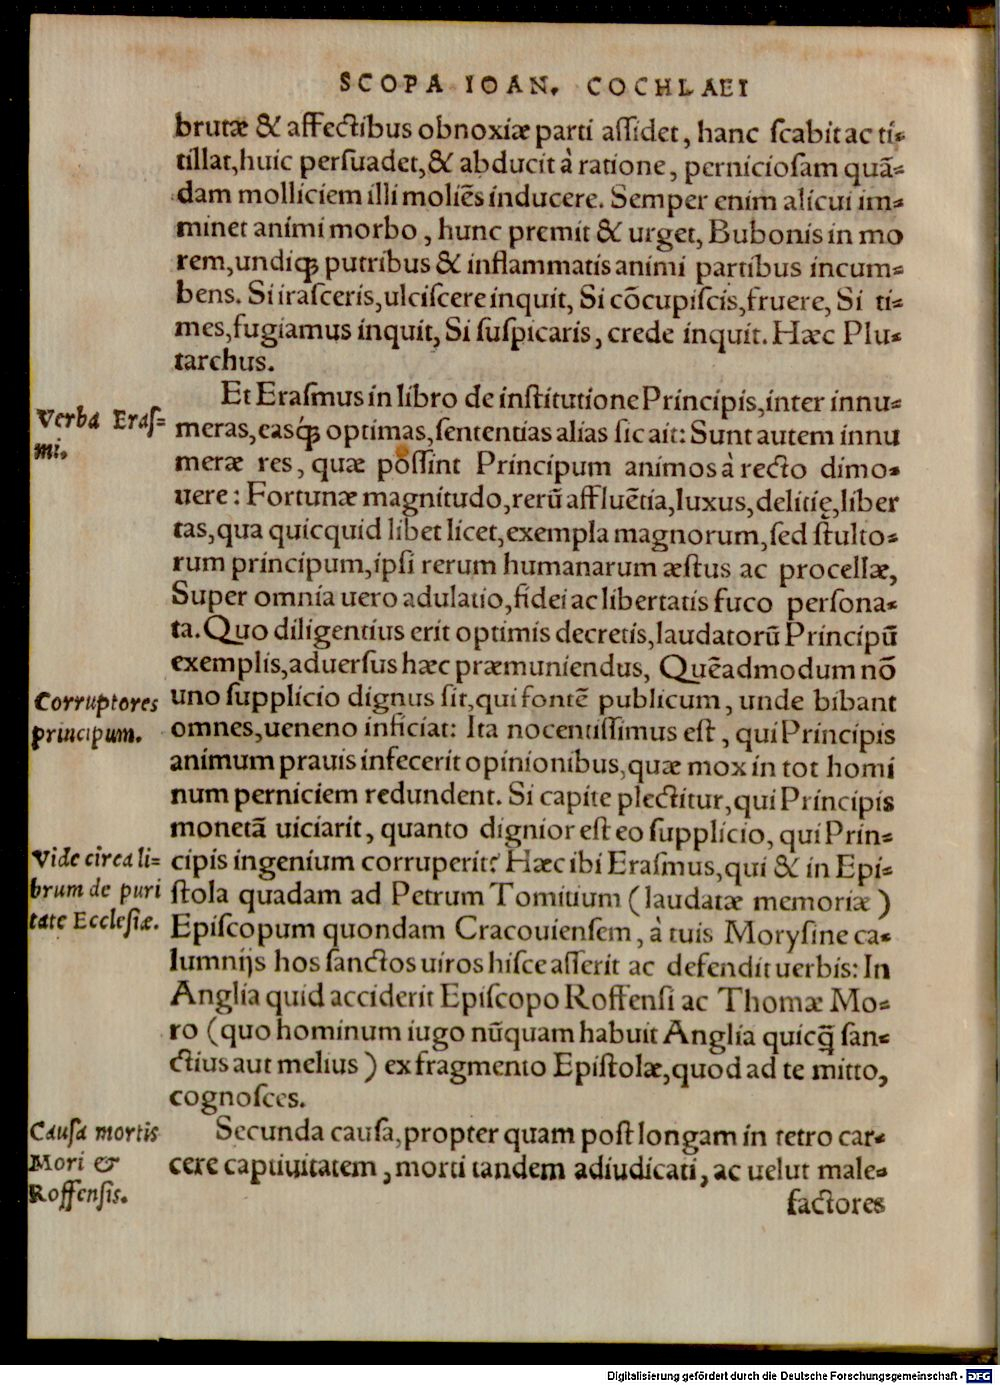 SCOPA IOAN. COCHLAEI
brutæ & affectibus obnoxiæ parti aſſidet, hanc ſcabit ac ti-
tillat, huic perſuadet, & abducit à ratione, pernicioſam quã-
dam molliciem illi moliẽs inducere. Semper enim alicui im-
minet animi morbo, hunc premit & urget, Bubonis in mo
rem, undiqꝫ putribus & inflammatis animi partibus incum-
bens. Si iraſceris, ulciſcere inquit, Si cõcupiſcis, fruere, Si ti-
mes, fugiamus inquit, Si ſuſpicaris, crede inquit. Hæc Plu-
tarchus.
Verba Eraſ-
mi.
Et Eraſmus in libro de inſtitutione Principis, inter innu-
meras, easqꝫ optimas, ſententias alias ſic ait: Sunt autem innu
meræ res, quæ poſſint Principum animos à recto dimo-
uere: Fortunæ magnitudo, rerũ affluẽtia, luxus, delitię, liber
tas, qua quicquid libet licet, exempla magnorum, ſed ſtulto-
rum principum, ipſi rerum humanarum æſtus ac procellæ,
Super omnia uero adulatio, fidei ac libertatis fuco perſona-
ta. Quo diligentius erit optimis decretis, laudatorũ Principũ
exemplis, aduerſus hæc præmuniendus, Quẽadmodum nõ
Corruptores
principum.
uno ſupplicio dignus ſit, qui fontẽ publicum, unde bibant
omnes, ueneno inficiat: Ita nocentiſſimus eſt, qui Principis
animum prauis infecerit opinionibus, quæ mox in tot homi
num perniciem redundent. Si capite plectitur, qui Principis
monetã uiciarit, quanto dignior eſt eo ſupplicio, qui Prin-
Vide circa li-
brum de puri
tate Eccleſiæ.
cipis ingenium corruperit? Hæc ibi Eraſmus, qui & in Epi-
ſtola quadam ad Petrum Tomitium (laudatæ memoriæ)
Epiſcopum quondam Cracouienſem, à tuis Moryſine ca-
lumnijs hos ſanctos uiros hiſce aſſerit ac defendit uerbis: In
Anglia quid acciderit Epiſcopo Roffenſi ac Thomæ Mo-
ro (quo hominum iugo nũquam habuit Anglia quicꝗ̃ ſan-
ctius aut melius) ex fragmento Epiſtolæ, quod ad te mitto,
cognoſces.
Cauſa mortis
Mori &
Roffenſis.
Secunda cauſa, propter quam poſt longam in tetro car-
cere captiuitatem, morti tandem adiudicati, ac uelut male-
factores
Digitalisierung gefördert durch die Deutsche Forschungsgemeinschaft - DFG